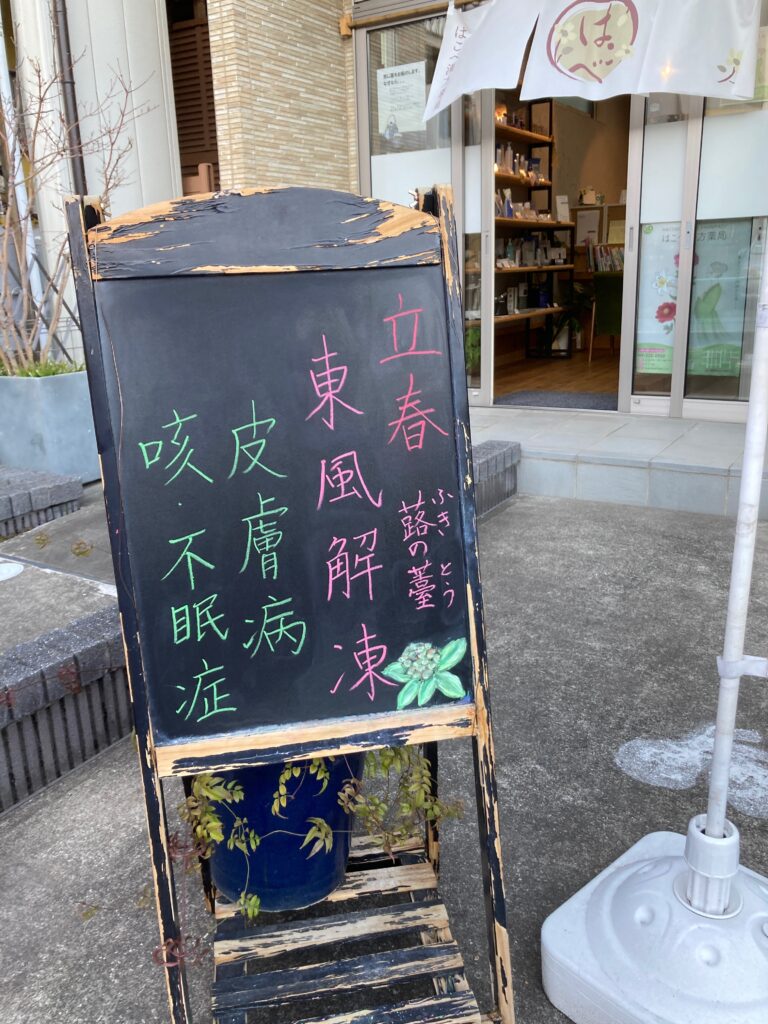 立春
蕗の薹
ふき とう
東風解凍
皮膚病
咳・不眠症
はべ